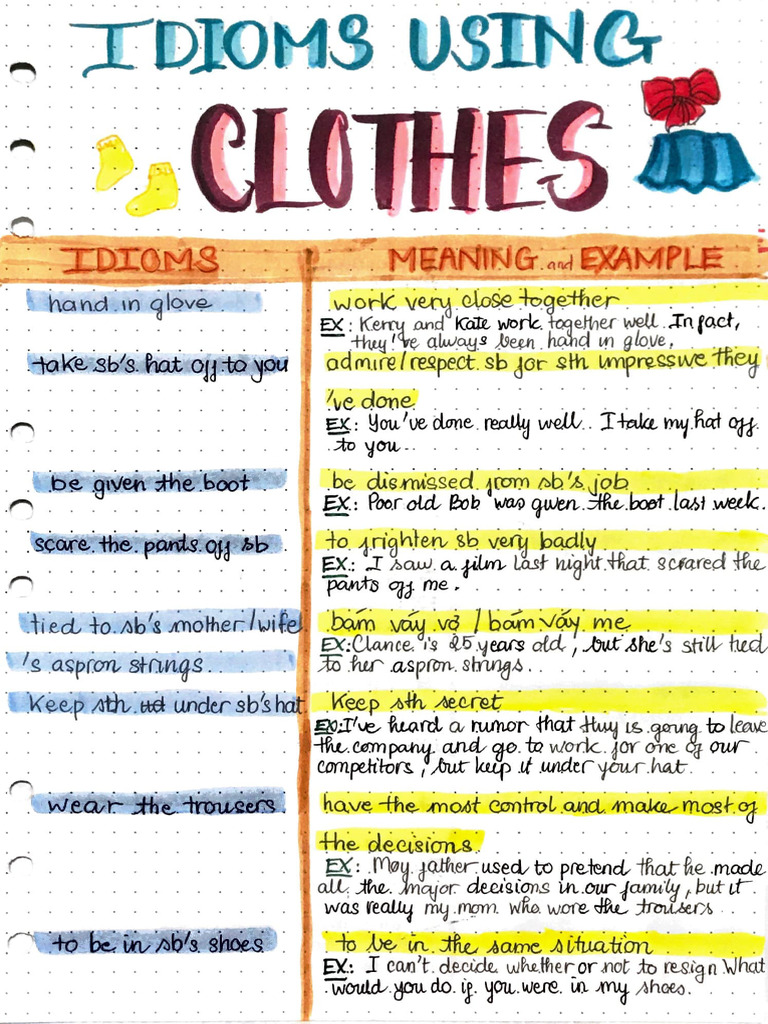 IDIOMS USING
CLOTHES
IDIOMS
MEANING and EXAMPLE
hand in glove
work very close together
EX: Kerry and Kate work together well. In fact,
they've always been hand in glove,
take sb's hat off to you
admire/respect sb for sth impressive they
've done
EX: You've done really well.. I take my hat off
to you..
be given the boot
be dismissed from sb's job
EX: Poor old Bob was given the boot last week.
scare the pants off sb
to frighten sb very badly
EX: I saw a film last night that scrared the
pants off me.
tied to sb's mother/wife
's aspron strings
bám váy vợ / bám váy mẹ
EX: Clance is 25 years old, but she's still tied
to her aspron strings..
Keep sth under sb's hat
Keep sth secret
EX: I've heard a rumor that is going to leave
the company and go to work for one of our
competitors, but keep it under your hat.
wear the trousers
have the most control and make most of
the decisions
EX: father used to pretend that he made
all the major decisions in our family, but it
was really my mom who wore the trousers
to be in sb's shoes
to be in the same situation
EX: I can't decide whether or not to resign What
would you do if you were in my shoes.